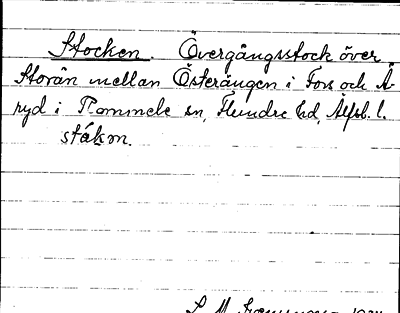 Stocken. Övergångsstock över
Storån mellan Österängen i Fors och Å-
ryd i Rommele sn, Flundre hd, Älfsb. l.
ståkm.